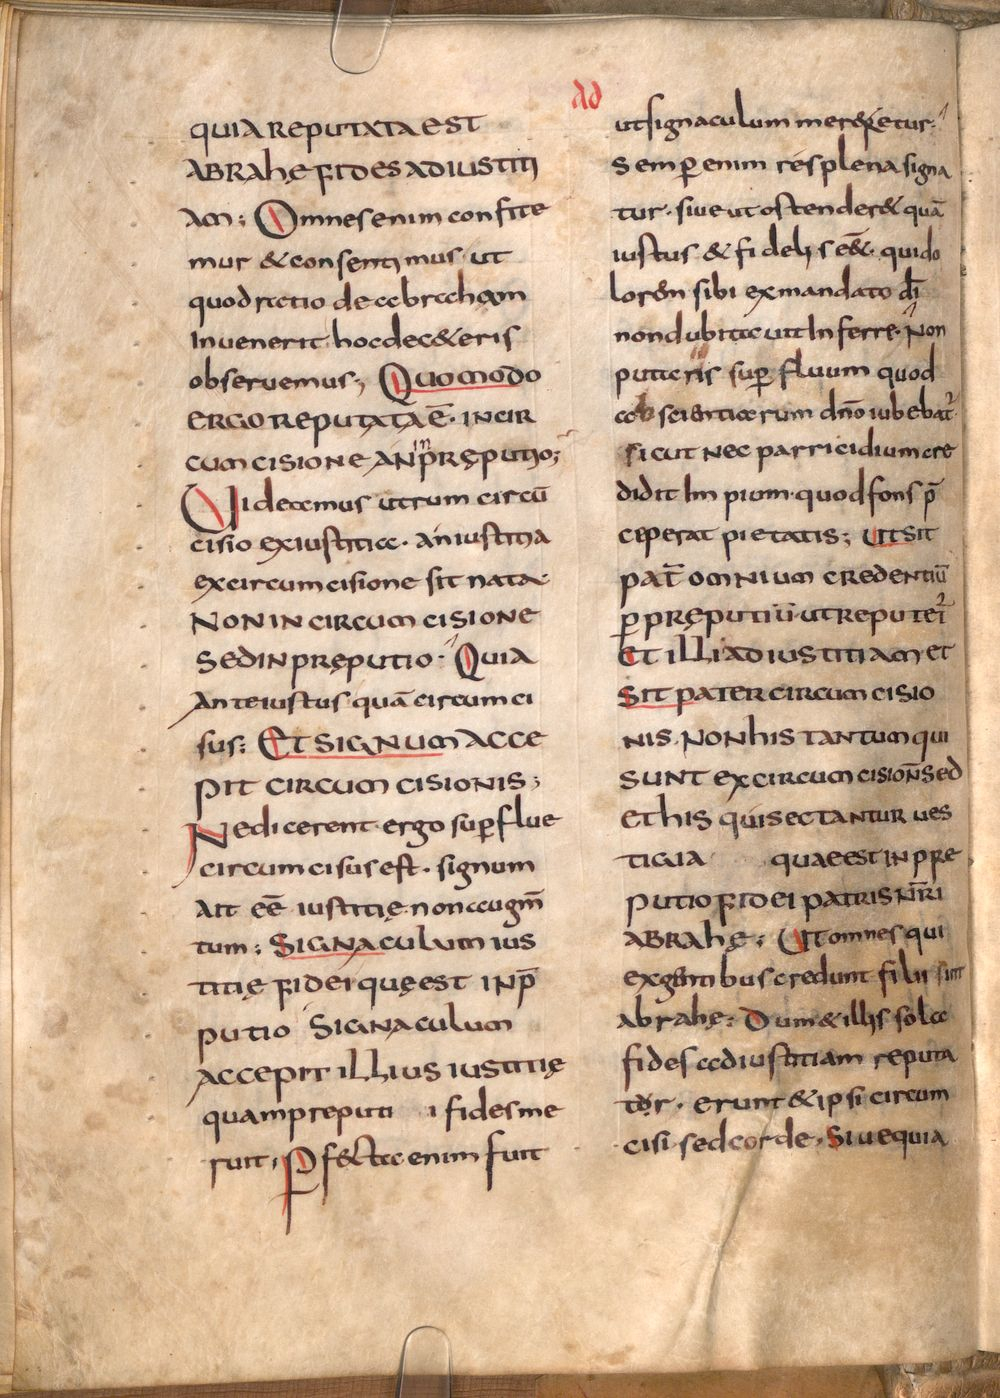 ad
QUIA REPUTATA EST
ABRAHĘ FIDES AD IUSTITI
AM; Omnes enim confite
mur & consentimus ut
quod ratio de abraham
Invenerit hoc de c&eris
observemus; QUOMODO
ERGO REPUTATA Ē· IN CIR
CUMCISIONE AN in PRĘPUTIO;
Videamus utrum circū
cisio ex iustitia· an iustitia
ex circumcisione sit nata·
NON IN CIRCUMCISIONE
SED IN PRĘPUTIO· Quia
Ante iustus quā circumci
sus; ET SIGNUM ACCE
PIT CIRCUMCISIONIS;
Ne dicerent ergo sup̄flue
circumcisus est· signum
Ait eē̄ iustitię· non augm̄
tum; SIGNACULUM IUS
TITIĘ FIDEI QUĘ EST IN P̄
PUTIO SIGNACULUM
ACCEPIT ILLIUS IUSTITIĘ
quam preputi i fides me
ruit; P̄f&cta enim fuit
ut signaculum mer&retur;
Semp̄ enim rés plena signa
tur· sive ut ostender& quā
iustus & fidelis eēt· qui do
lorem sibi ex mandato dī
non dubitavit Inferre· Non
putaris sup̄ fluum quod
ab scientia rum dn̄o iubebat̄·
sicut nec parricidium cre
didit Impium· quod fons p̄
ceperat pietatis; UT SIT
PAT̄ OMNIUM CREDENTIŪ
P̄ PRĘPUTIŪ· UT REPUTET̄
ET ILLI AD IUSTITIAM ET
SIT PATER CIRCUMCISIO
NIS· NON HIS TANTUM QUI
SUNT EX CIRCUMCISION̄ SED
ET HIS QUI SECTANTUR VES
TIGIA QUAE EST IN PRE
PUTIO FIDEI PATRIS NR̄I
ABRAHĘ; Ut omnes qui
ex gentibus credunt filii sint
abrahę; Dum & illis sola
fides ad iustitiam reputa
tur· erunt & ipsi circum
cisi· sed corde· Sive quia